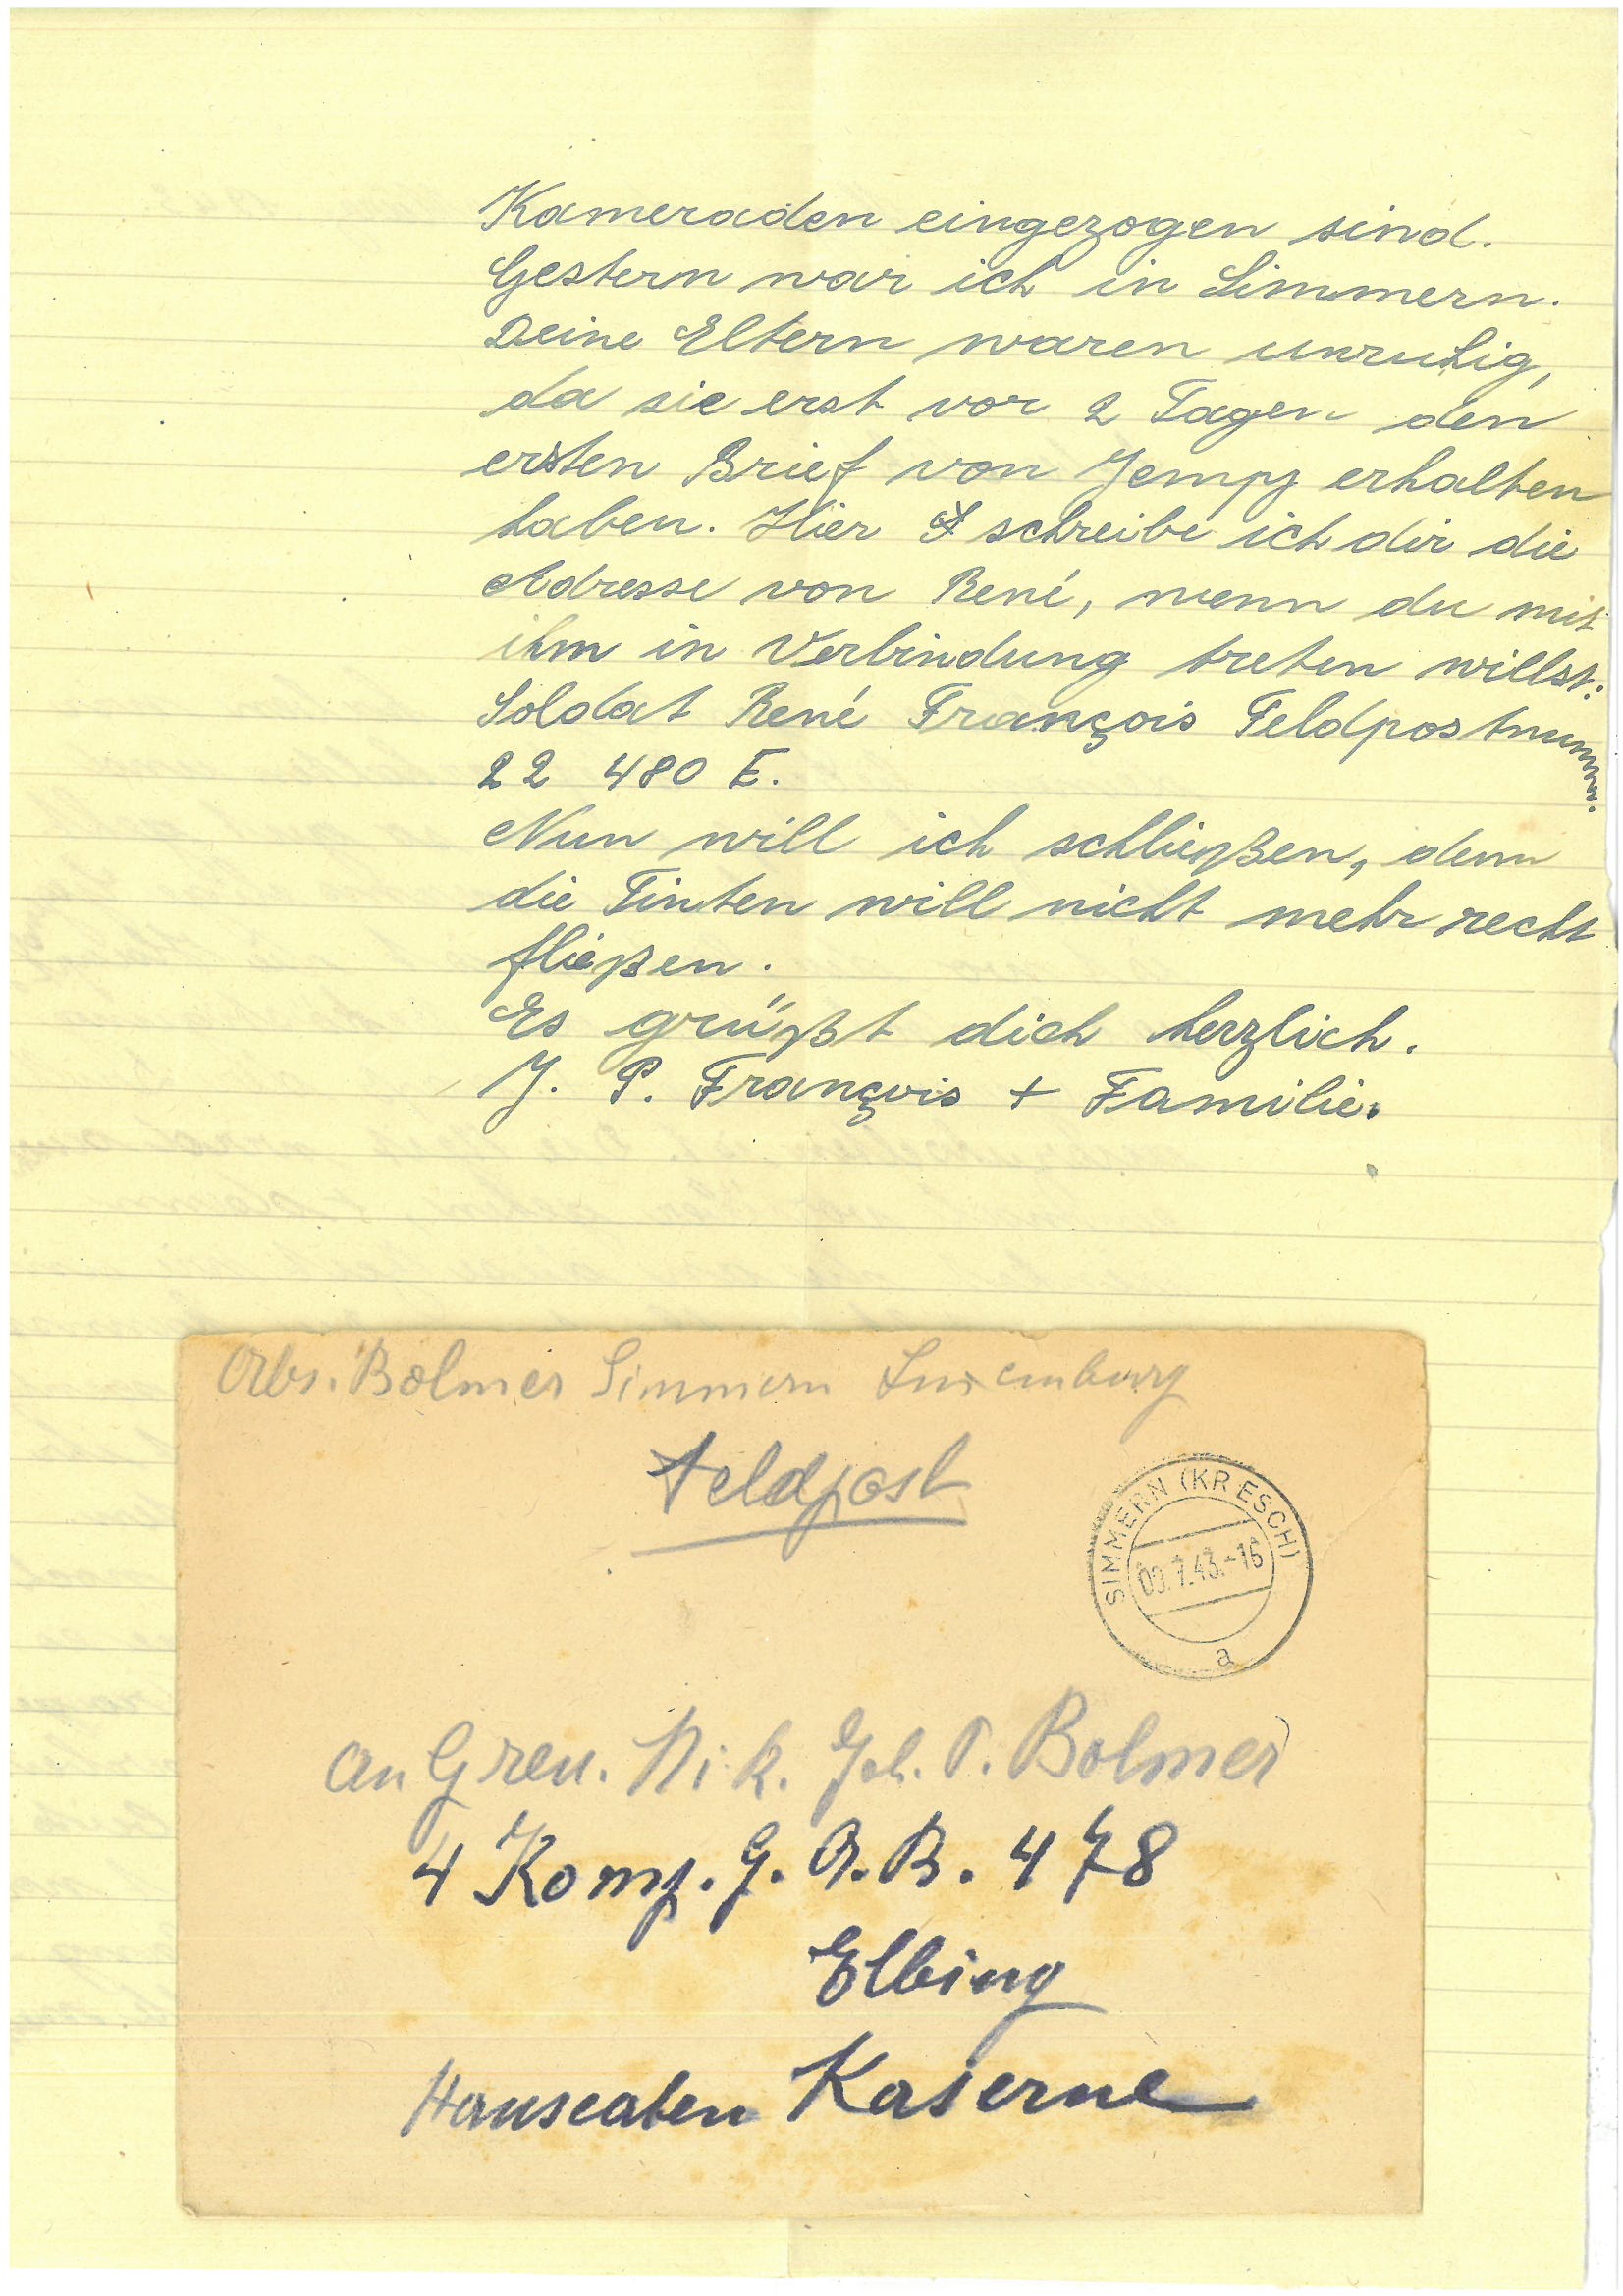 Kameraden eingezogen sind.
Gestern war ich in Simmern.
Deine Eltern waren unruhig,
da sie erst vor 2 Tagen den
ersten Brief von Jempy erhalten
haben. Hier schreibe ich dir die
Adresse von René, wenn du mit
ihm in Verbindung treten willst:
Soldat René François Feldpostnummer.
22 480 E.
Nun will ich schließen, denn
die Tinten will nicht mehr recht
fließen.
Es grüßt dich herzlich.
J. P. François + Familie.
Abs. Bolmer Simmern Luxemburg
Feldpost
SIMMERN (KR ESCH)
09.7.43.-16
a
An Gren. Nik. Joh. P. Bolmer
4 Komp. G. A. B. 478
Elbing
Hanseaten Kaserne